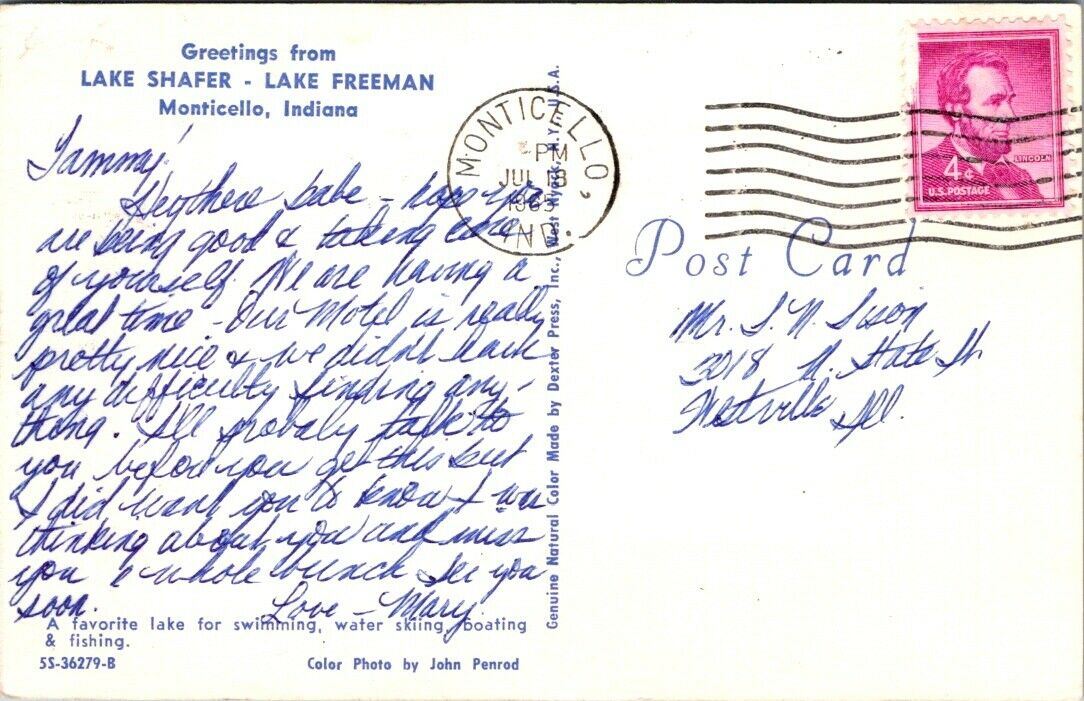 Greetings from
LAKE SHAFER - LAKE FREEMAN
Monticello, Indiana
Tammy!
Hey there babe - hope you
are being good & taking care
of yourself. We are having a
great time - Our Motel is really
pretty nice & we didn't have
any difficulty finding any-
thing. I'll probaly talk to
you before you get this but
I did want you to know I was
thinking about you and miss
you a whole bunch. See you
soon.
Love - Mary.
A favorite lake for swimming, water skiing, boating
& fishing.
5S-36279-B
Color Photo by John Penrod
Genuine Natural Color Made by Dexter Press, Inc., West Nyack, N.Y., U.S.A.
MONTICELLO,
PM
JUL 18
IND.
4¢
LINCOLN
U.S. POSTAGE
Post Card
Mr.
N. State St
Westville Ill.